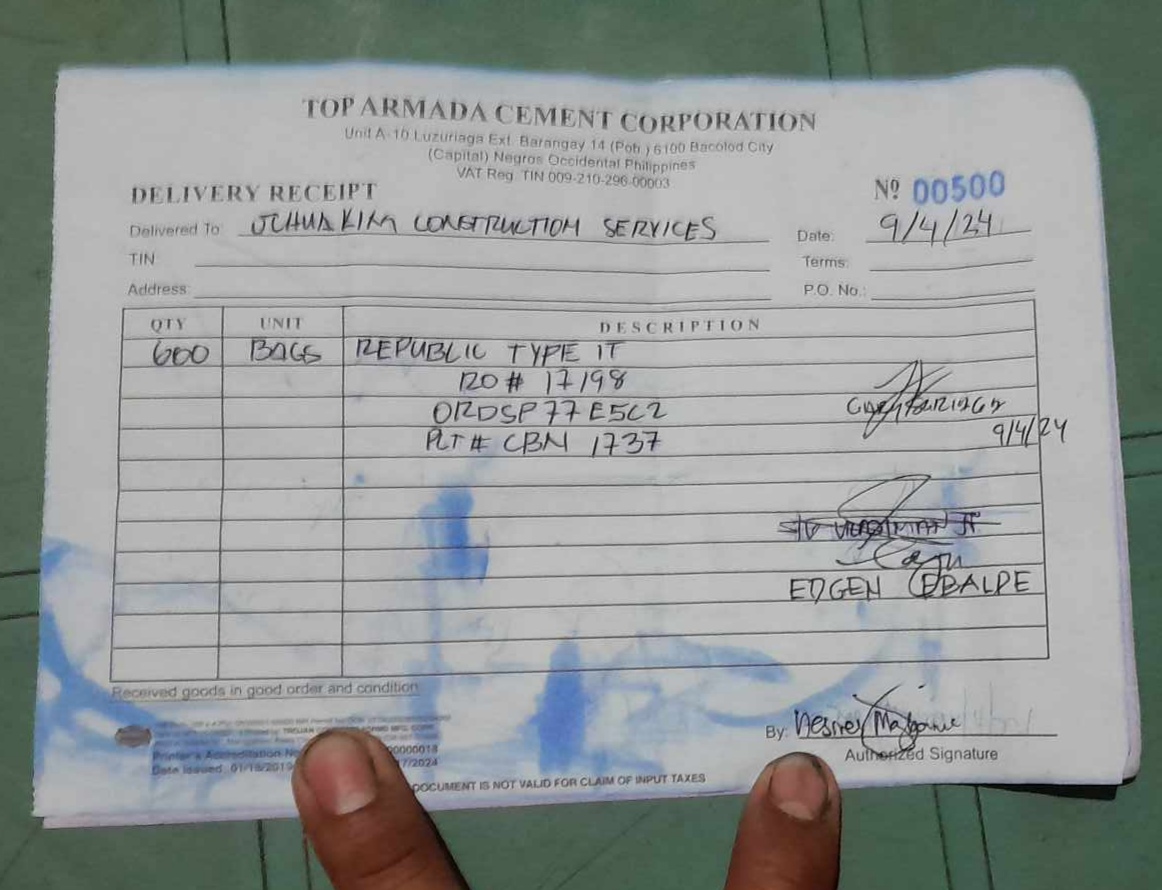 TOP ARMADA CEMENT CORPORATION
Unit A-10 Luzuriaga Ext. Barangay 14 (Pob.) 6100 Bacolod City
(Capital) Negros Occidental Philippines
VAT Reg. TIN 009-210-296-00003
DELIVERY RECEIPT Nº 00500
Delivered To JCHUAKIM CONSTRUCTION SERVICES Date: 9/4/24
TIN Terms:
Address: P.O. No.:
QTY UNIT DESCRIPTION
600 BAGS REPUBLIC TYPE IT
RO # 17198
ORDSP77E5C2
PLT # CBN 1737
9/4/24
EDGEN EBALPE
Received goods in good order and condition
By:
Authorized Signature
Printer's Accreditation No 0000018
Date issued: 01/18/2019 7/2024
DOCUMENT IS NOT VALID FOR CLAIM OF INPUT TAXES